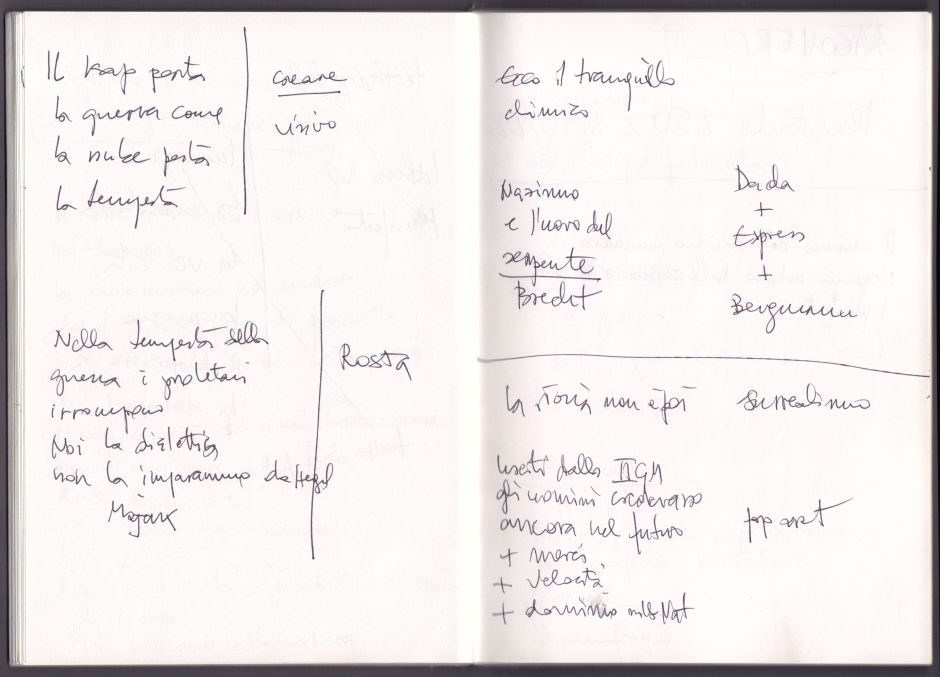 Il kap porta
la guerra come
la nube porta
la tempesta
creare
visivo
Nella tempesta della
guerra i proletari
irrompono
Noi la dialettica
non la imparammo da Hegel
Majak
Rosta
Ecco il tranquillo
chimico
Nazismo
e l'uovo del
serpente
Brecht
Dada
+
Express
+
Bergmann
la storia non è più
surrealismo
Usciti dalla IIGM
gli uomini credevano
ancora nel futuro
+ merci
+ velocità
+ dominio
pop art